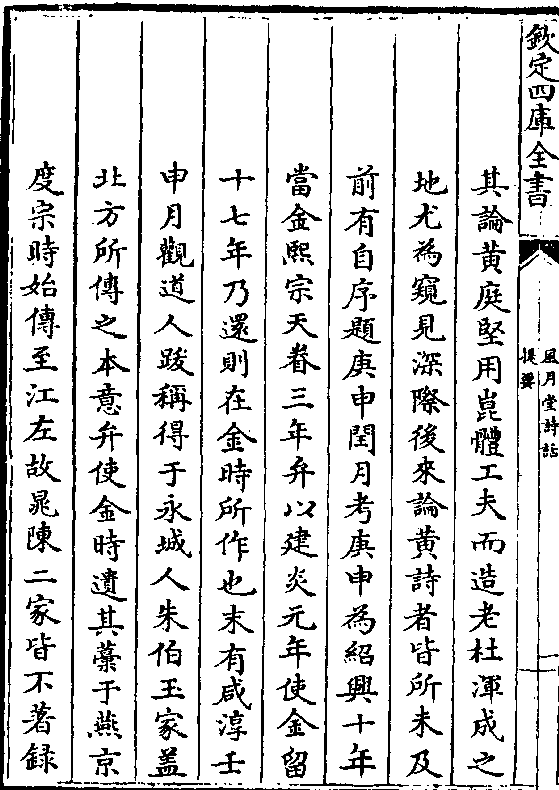 欽定四庫全書
風月堂詩話
提要
其論黄庭堅用崑體工夫而造老杜渾成之
地尤為窺見深際後來論黄詩者皆所未及
前有自序題庚申閏月考庚申為紹興十年
當金熙宗天眷三年弁以建炎元年使金留
十七年乃還則在金時所作也末有咸淳壬
申月觀道人跋稱得于永城人朱伯玉家盖
北方所傳之本意弁使金時遺其藁于燕京
度宗時始傳至江左故晁陳二家皆不著録